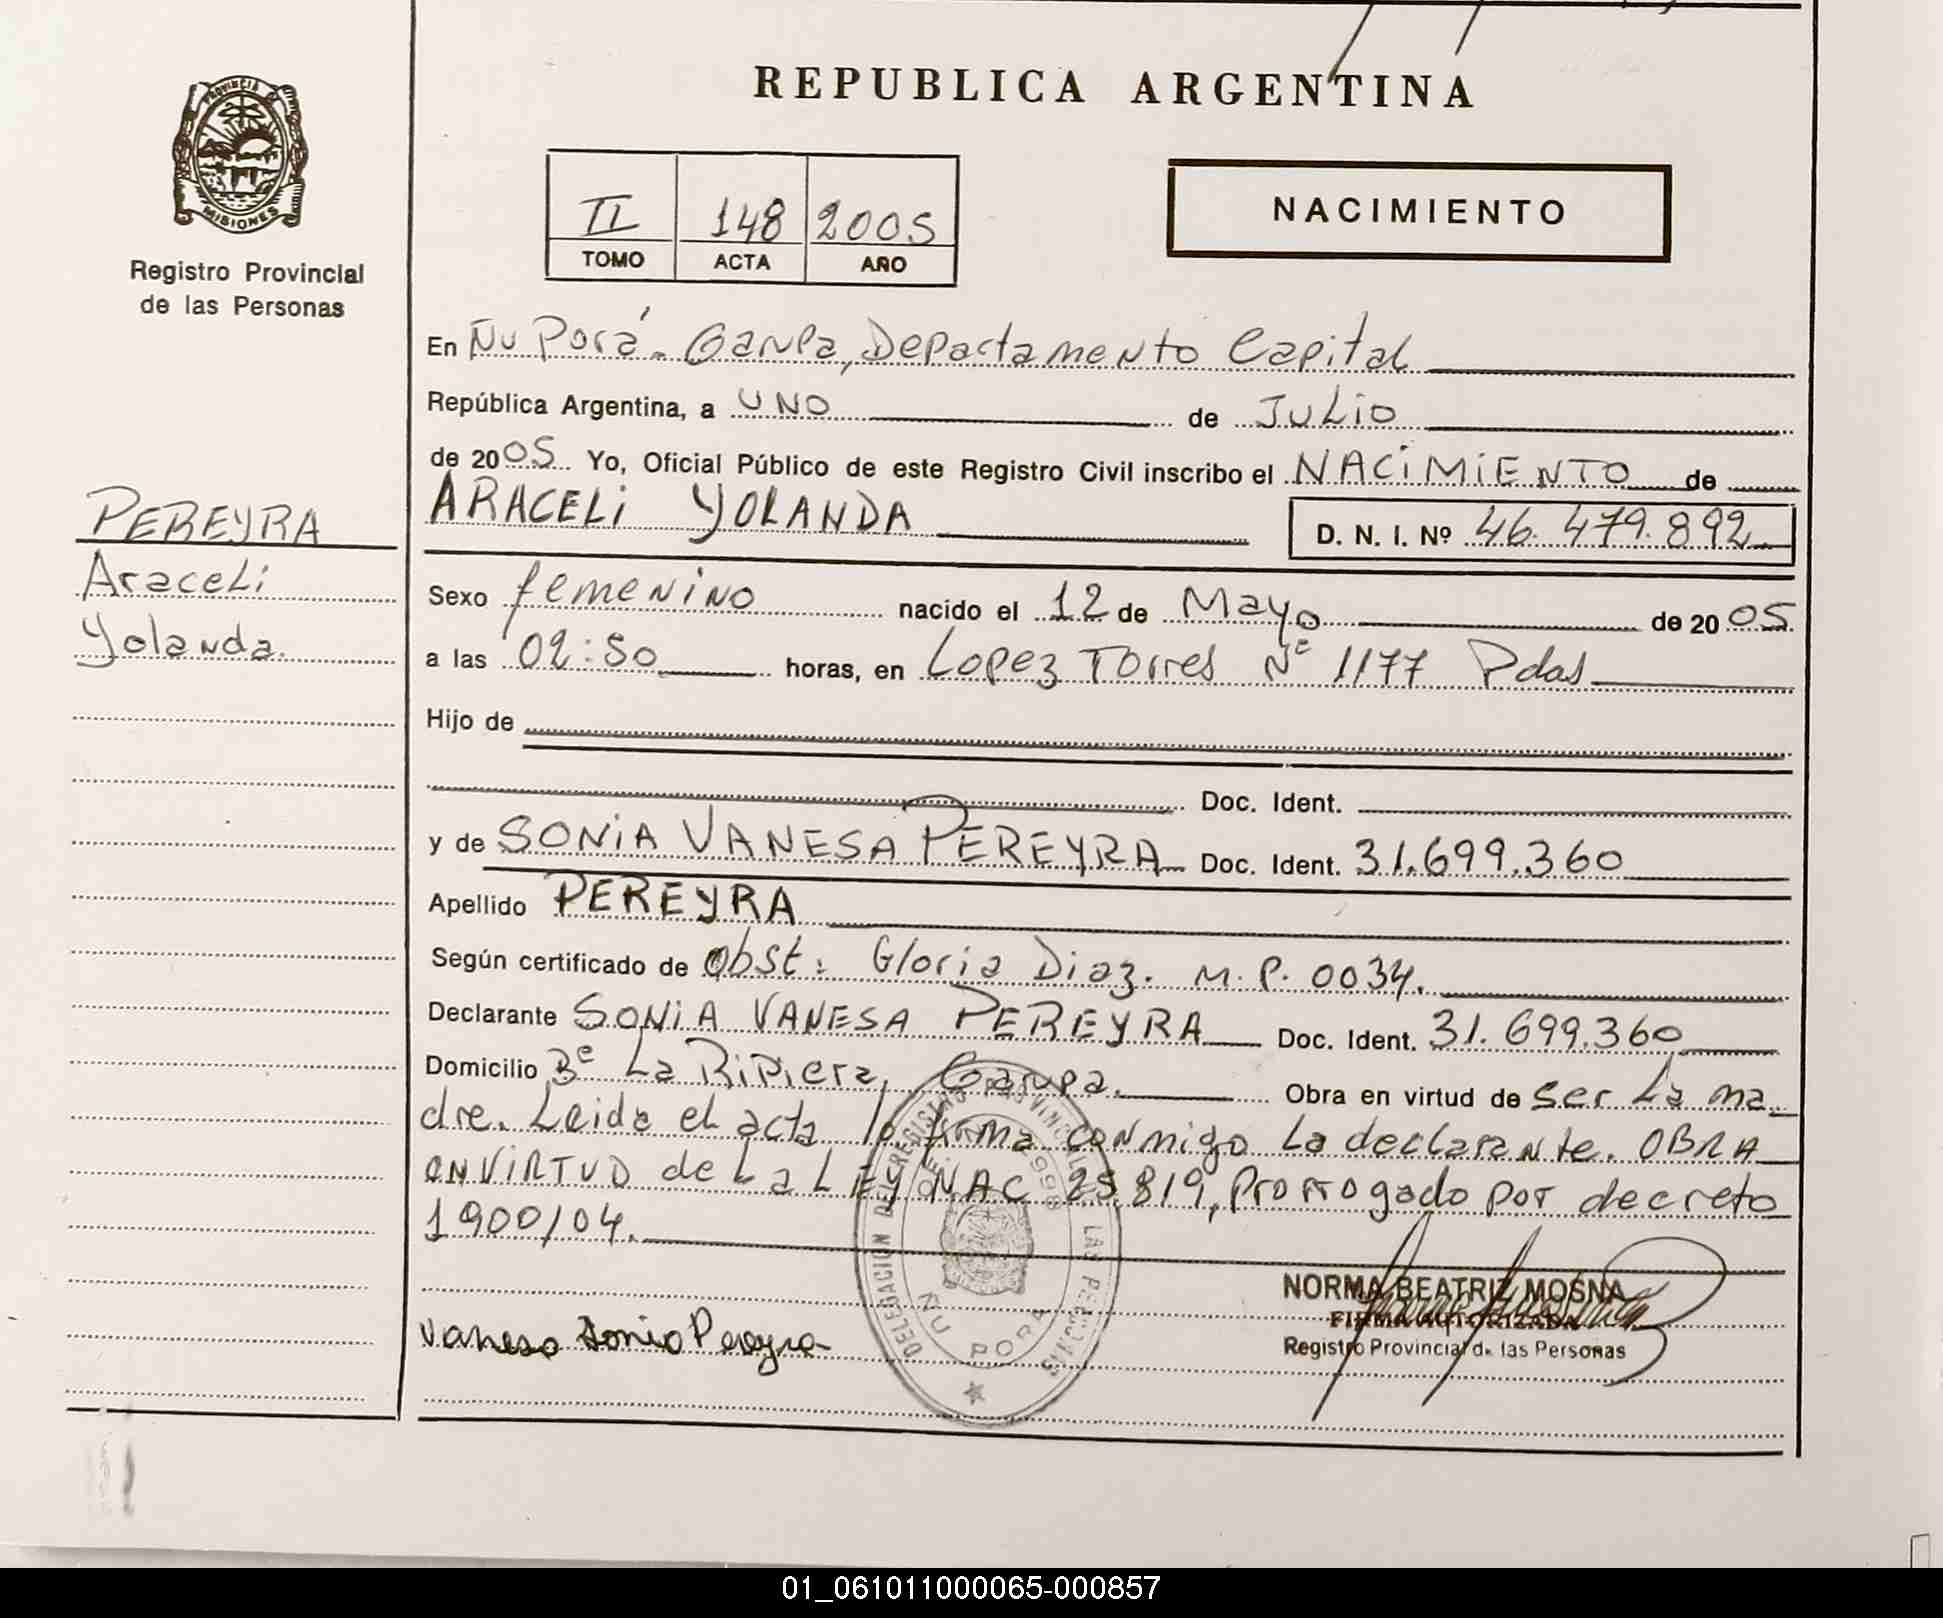 REPUBLICA ARGENTINA
PROVINCIA DE
MISIONES
Registro Provincial
de las Personas
II 148 2005
TOMO ACTA AÑO
NACIMIENTO
En Ñu Porá - Garupa, Departamento Capital
República Argentina, a UNO de JULIO
de 2005 Yo, Oficial Público de este Registro Civil inscribo el NACIMIENTO de
ARACELI YOLANDA
D. N. I. Nº 46.479.892
PEREYRA
Araceli
Yolanda.
Sexo femenino nacido el 12 de Mayo de 2005
a las 02:50 horas, en Lopez Torres Nº 1177 Pdas
Hijo de
Doc. Ident.
y de SONIA VANESA PEREYRA Doc. Ident. 31.699.360
Apellido PEREYRA
Según certificado de Obst: Gloria Diaz. M.P. 0034.
Declarante SONIA VANESA PEREYRA Doc. Ident. 31.699.360
Domicilio Bº La Ribiera, Garupa. Obra en virtud de ser La ma
dre. Leida el acta la firma conmigo La declarante. OBRA
EN VIRTUD de La LEY NAC 25.819, prorrogado por decreto
1900/04.
DELEGACION DEL REGISTRO PROVINCIAL DE LAS PERSONAS
ÑU PORA
NORMA BEATRIZ MOSNA
FIRMA AUTORIZADA
Registro Provincial de las Personas
Vanesa Sonia Pereyra
01_061011000065-000857